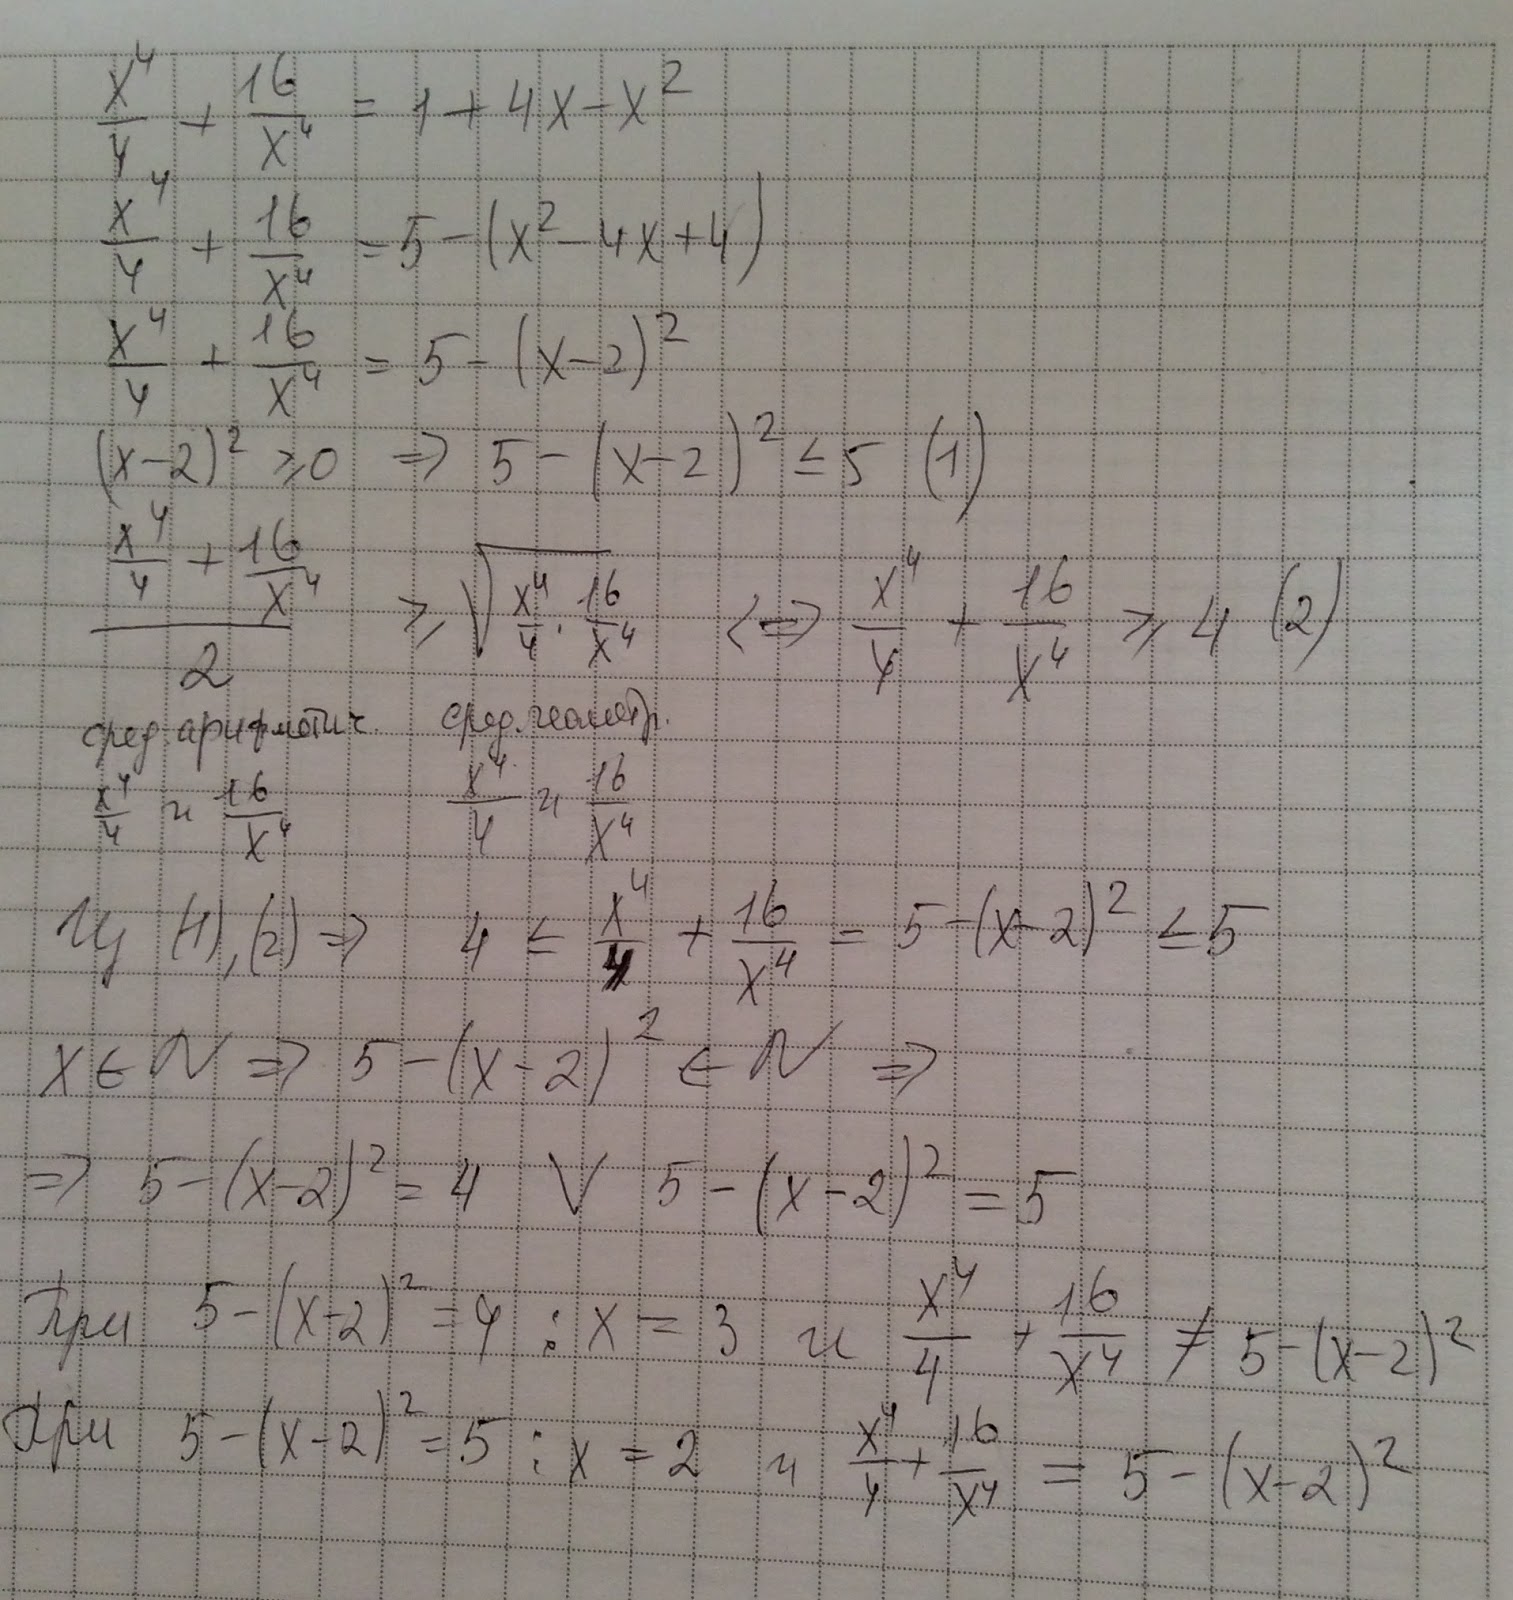 x⁴/4 + 16/x⁴ = 1 + 4x - x²
x⁴/4 + 16/x⁴ = 5 - (x² - 4x + 4)
x⁴/4 + 16/x⁴ = 5 - (x-2)²
(x-2)² ⩾ 0 ⇒ 5 - (x-2)² ≤ 5 (1)
(x⁴/4 + 16/x⁴)/2 ⩾ √(x⁴/4 · 16/x⁴) ⇔ x⁴/4 + 16/x⁴ ⩾ 4 (2)
сред. арифметич. сред. геометр.
x⁴/4 и 16/x⁴ x⁴/4 и 16/x⁴
Из (1), (2) ⇒ 4 ≤ x⁴/4 + 16/x⁴ = 5 - (x-2)² ≤ 5
x ∈ N ⇒ 5 - (x-2)² ∈ N ⇒
⇒ 5 - (x-2)² = 4 V 5 - (x-2)² = 5
При 5 - (x-2)² = 4 : x = 3 и x⁴/4 + 16/x⁴ ≠ 5 - (x-2)²
При 5 - (x-2)² = 5 : x = 2 и x⁴/4 + 16/x⁴ = 5 - (x-2)²